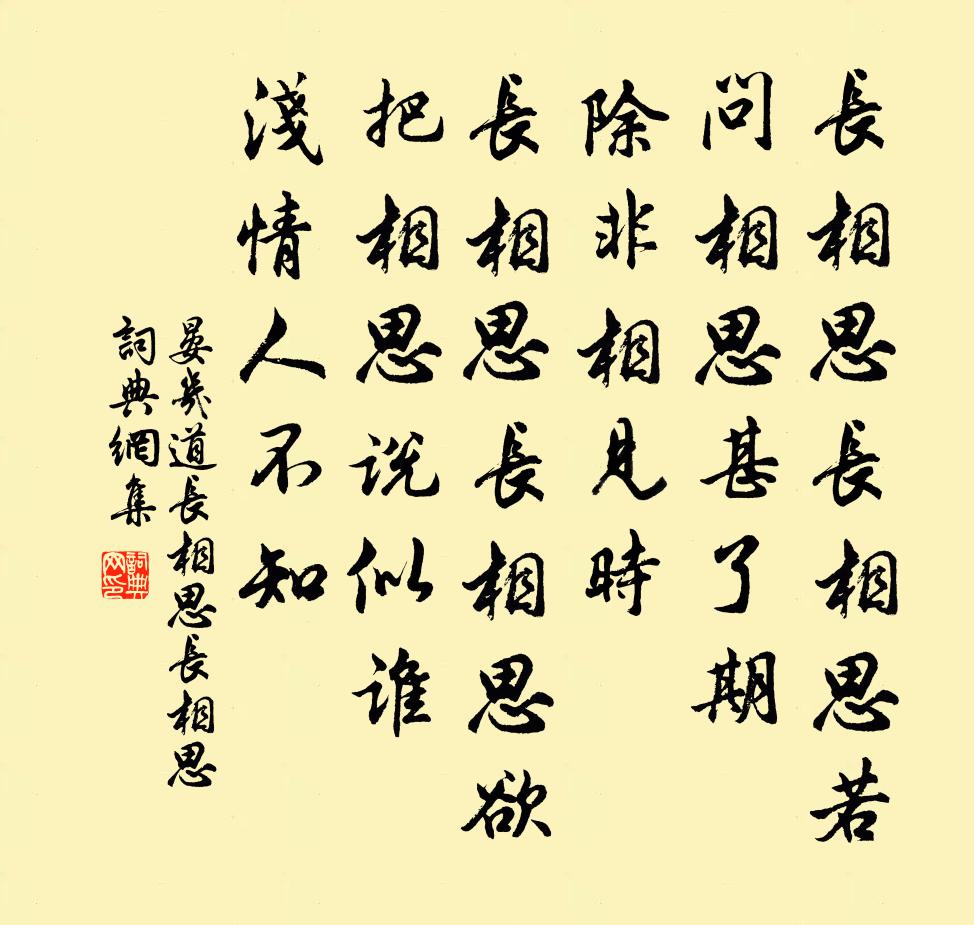 長相思長相思若
問相思甚了期
除非相見時
長相思長相思欲
把相思説似誰
淺情人不知
晏幾道長相思長相思
詞典網集
詞典
网印